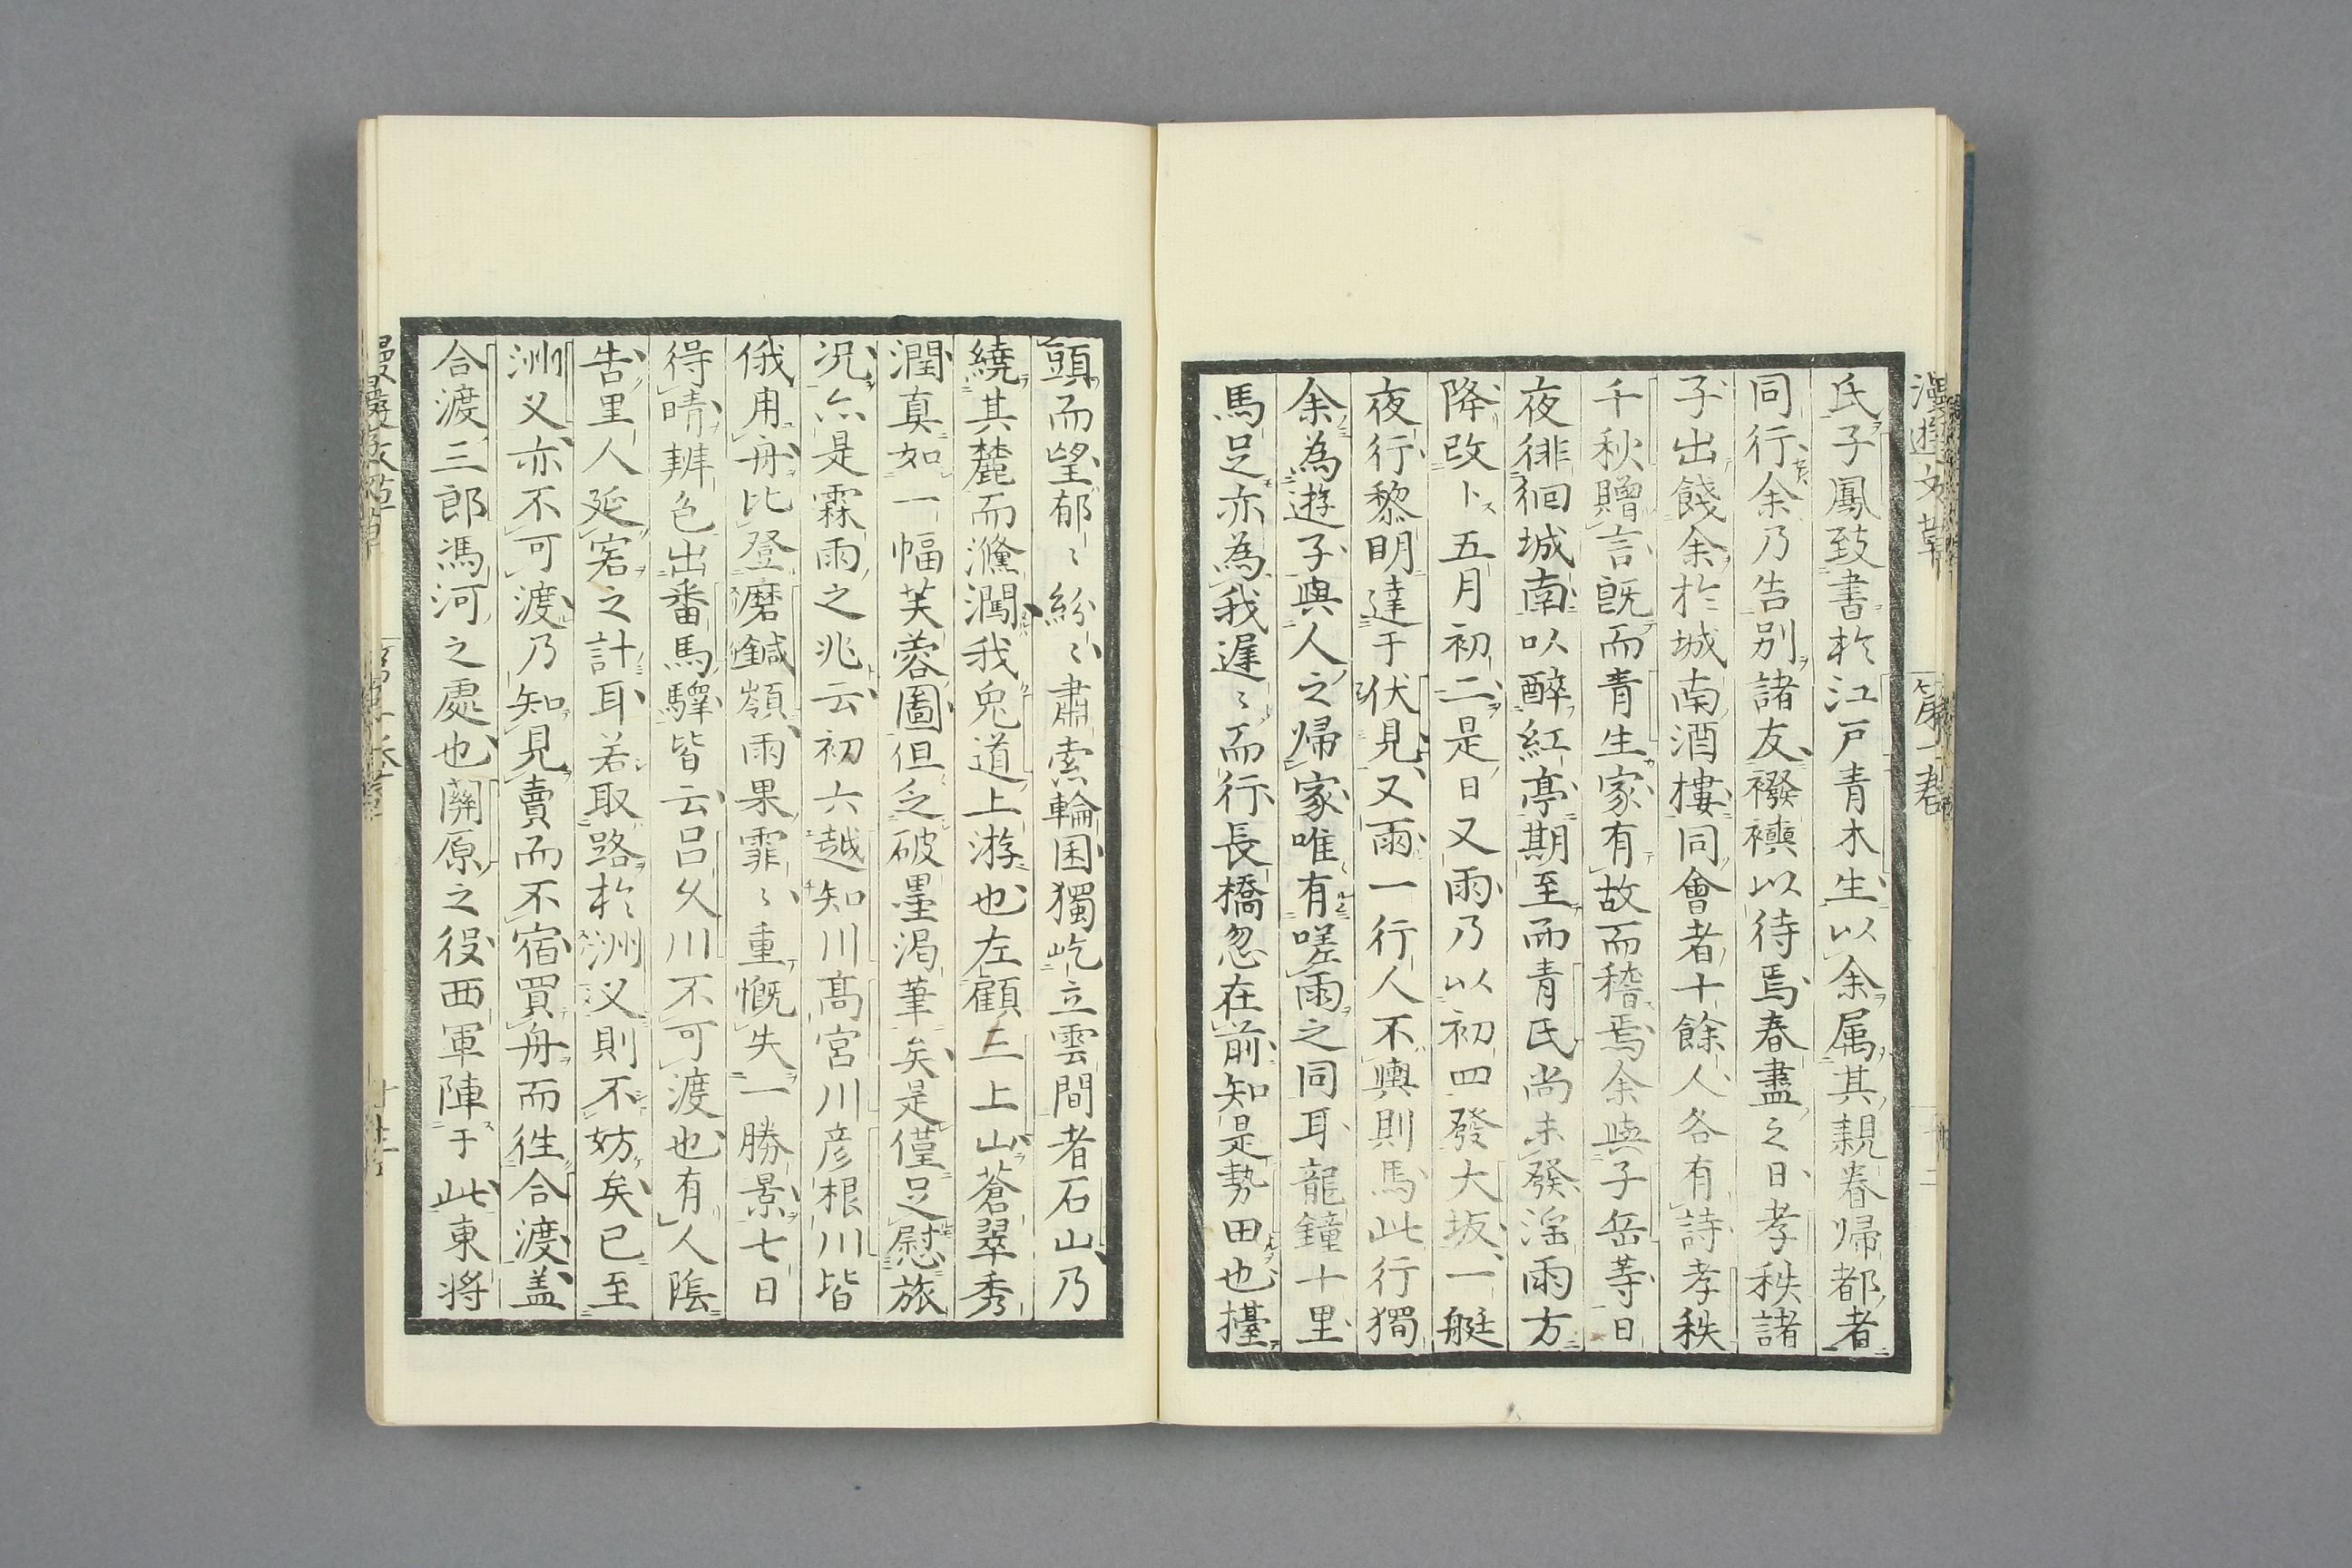 氏子鳳致書於江戸青木生以余属其親眷帰都者
同行余乃告別諸友襏襫以待焉春盡之日孝秩諸
子出餞余於城南酒樓同會者十餘人各有詩孝秩
千秋贈言既而青生家有故而稽焉余與子岳等日
夜徘徊城南以醉紅亭期至而青氏尚未發淫雨方
降改卜五月初二是日又雨乃以初四發大坂一艇
夜行黎明達于伏見又雨一行人不輿則馬此行獨
余為遊子與人之帰家唯有嗟雨之同耳龍鐘十里
馬足亦為我遲〻而行長橋忽在前知是勢田也擡
頭而望郁〻紛〻肅索輪囷獨屹立雲間者石山乃
繞其麓而瀠濶我兔道上游也左顧三上山蒼翠秀
潤真如一幅芙蓉圖但乏破墨渇筆矣是僅足慰旅
况亦是霖雨之兆云初六越知川高宮川彦根川皆
俄用舟比登磨鍼嶺雨果霏〻重慨失一勝景七日
得晴辨色出番馬驛皆云呂久川不可渡也有人隂
告里人延宕之計耳若取路於洲义則不妨矣已至
洲义亦不可渡乃知見賣而不宿買舟而徃合渡盖
合渡三郎馮河之處也關原之役西軍陣于此東将